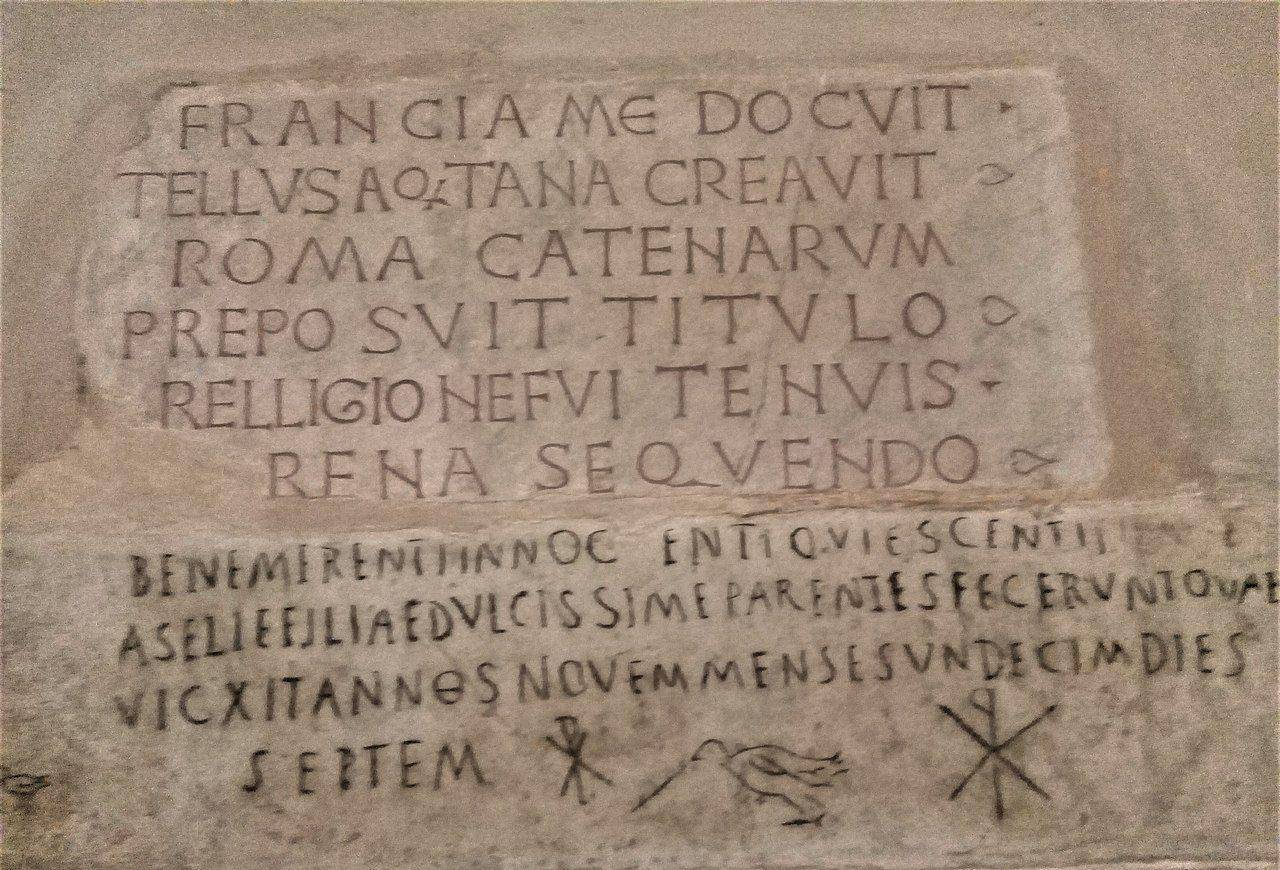 FRANCIA ME DOCVIT
TELLVS AQITANA CREAVIT
ROMA CATENARVM
PREPOSVIT TITVLO
RELLIGIONE FVI TENVIS
RENA SEQVENDO
BENEMERENTI INNOCENTI QVIESCENTI
ASELIE FILIAE DVLCISSIME PARENTES FECERVNT QVAE
VICXIT ANNOS NOVEM MENSES VNDECIM DIES
SEPTEM ☧ ☧